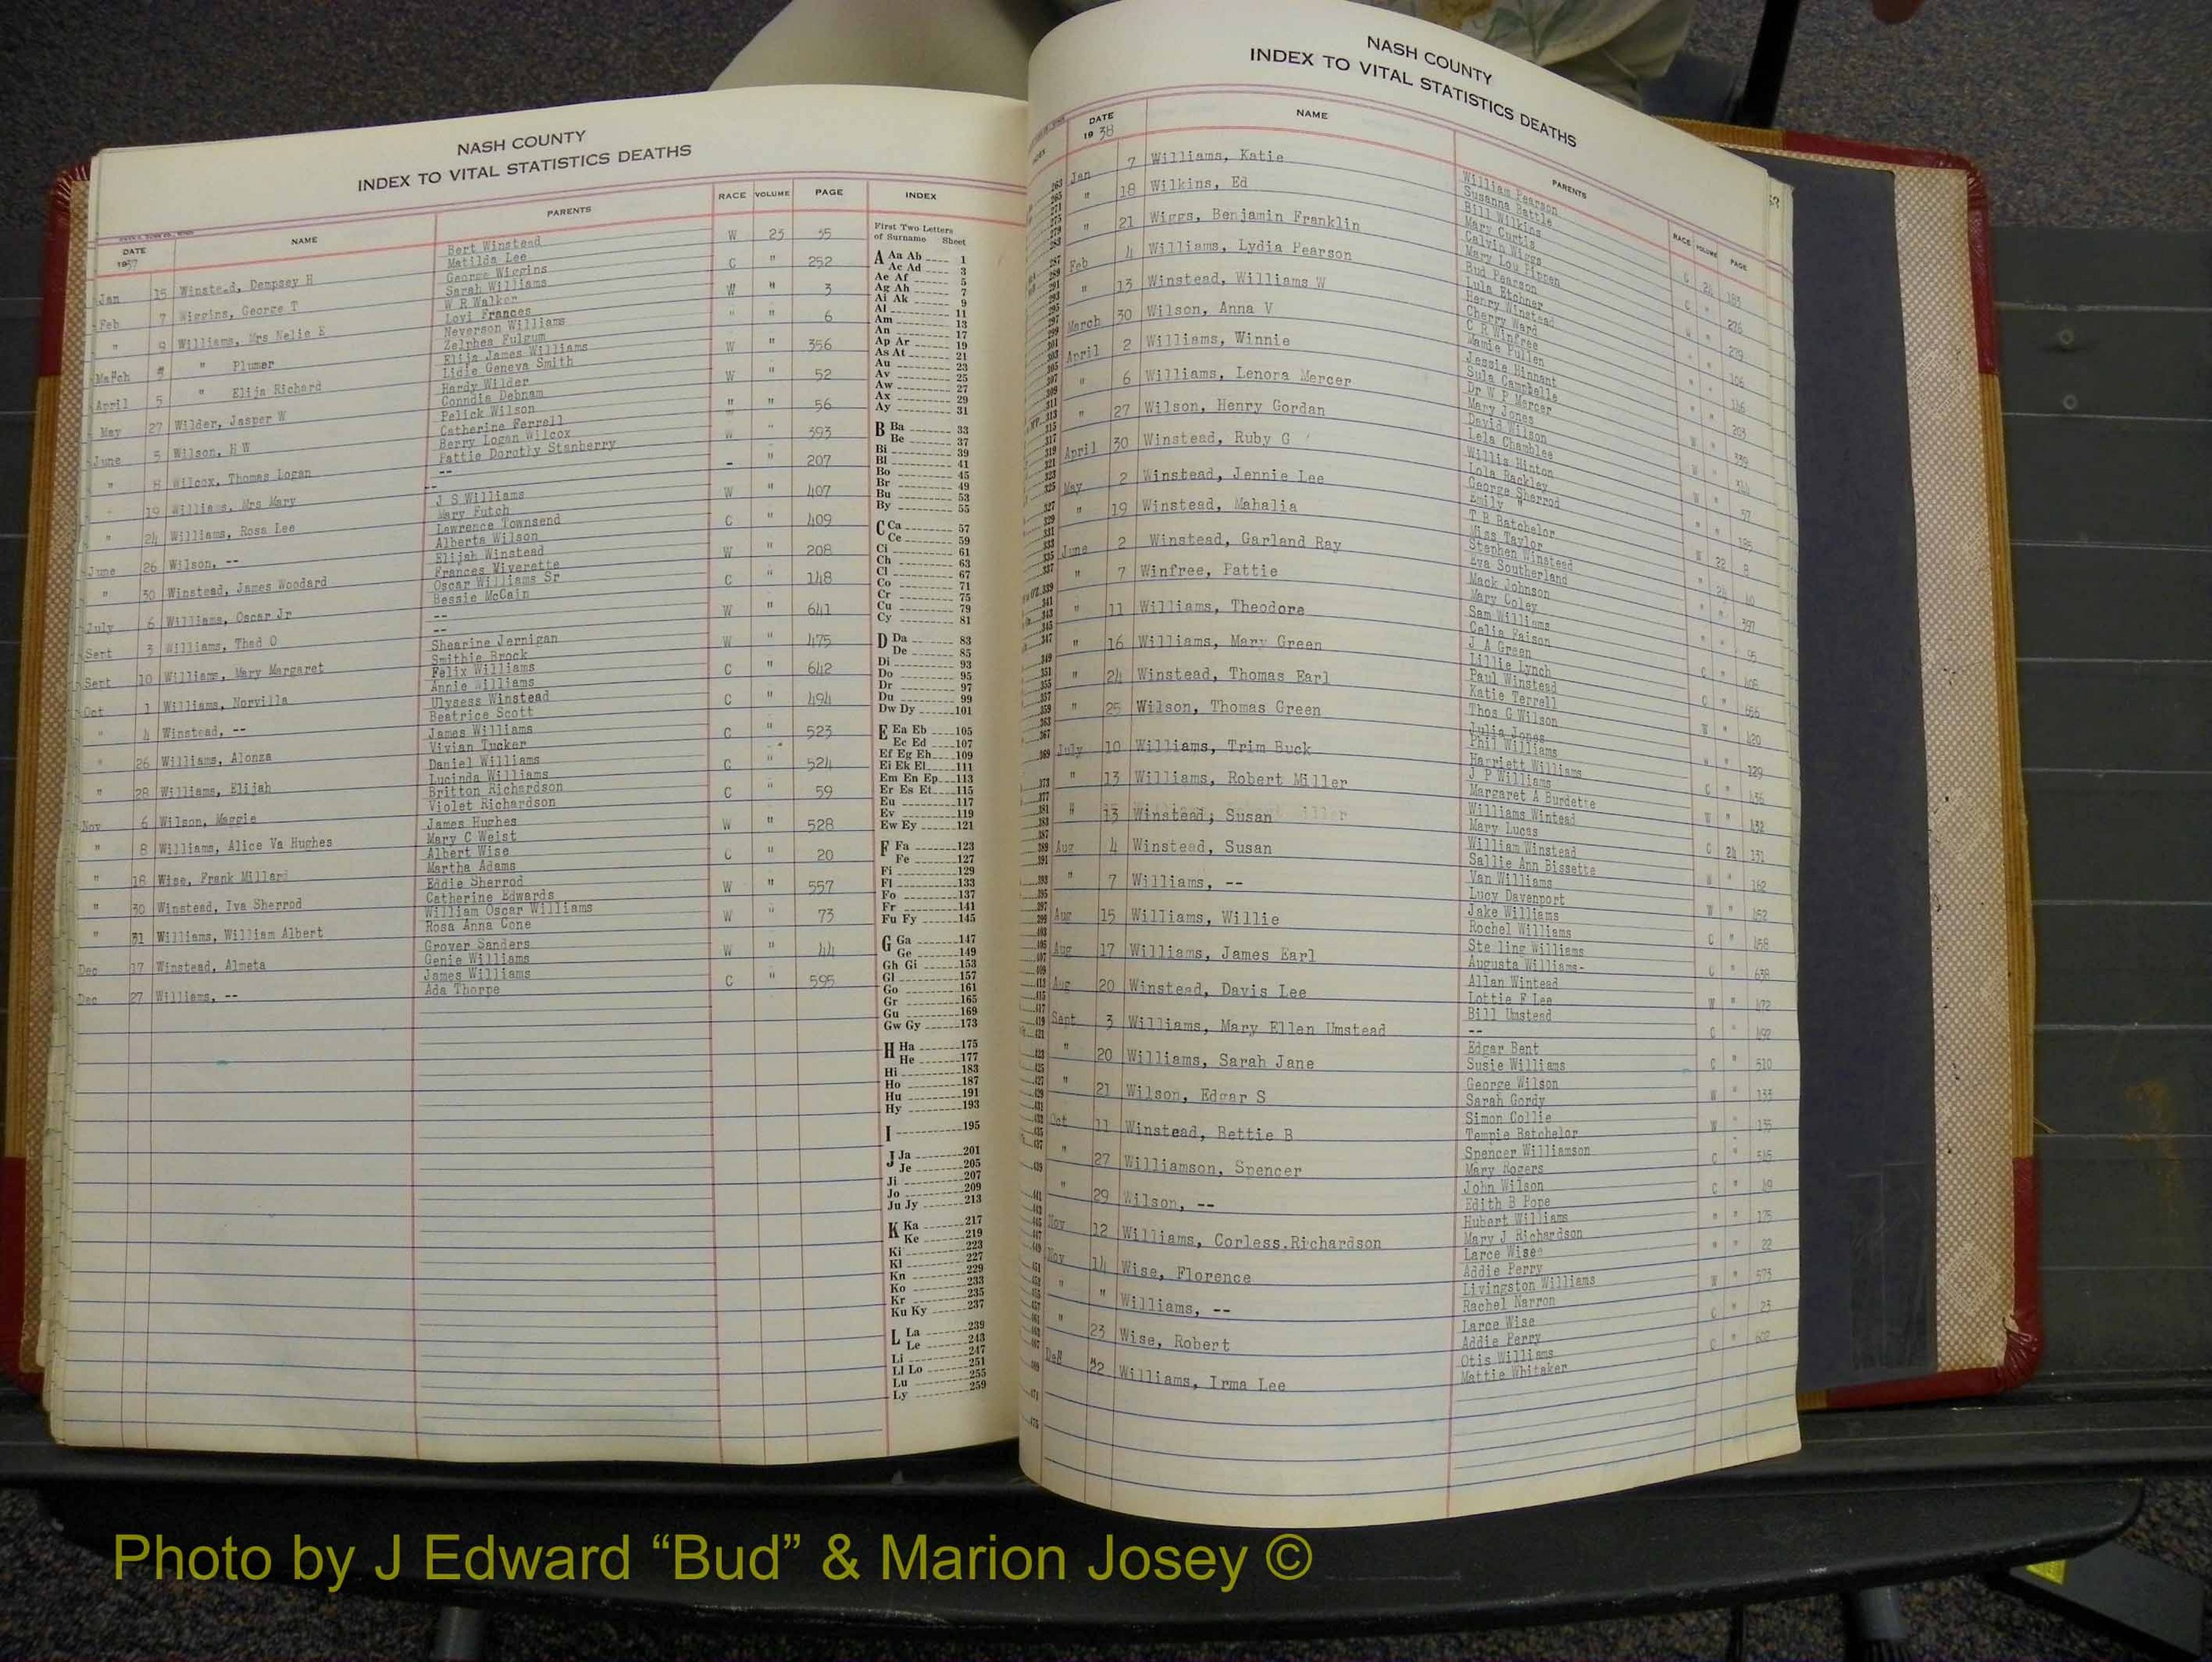 NASH COUNTY
INDEX TO VITAL STATISTICS DEATHS
DATE 1937 NAME PARENTS RACE VOLUME PAGE INDEX
Jan 15 Winstead, Dempsey H Bert Winstead W 23 35
Matilda Lee
Feb 7 Wiggins, George T George Wiggins C " 252
Sarah Williams
" 9 Williams, Mrs Nelie E W R Walker W " 3
Lovi Frances
March " Plumer Neverson Williams " " 6
Zelphea Fulgum
April 5 " Elija Richard Elija James Williams W " 356
Lidie Geneva Smith
May 27 Wilder, Jasper W Hardy Wilder W " 52
Conndia Debnam
June 5 Wilson, H W Pelick Wilson " " 56
Catherine Ferrell
" 8 Wilcox, Thomas Logan Berry Logan Wilcox W " 393
Pattie Dorotly Stanberry
" 19 Williams, Mrs Mary -- - " 207
--
" 24 Williams, Rosa Lee J S Williams W " 407
Mary Futch
June 26 Wilson, -- Lawrence Townsend C " 409
Alberta Wilson
" 30 Winstead, James Woodard Elijah Winstead W " 208
Frances Viverette
July 6 Williams, Oscar Jr Oscar Williams Sr C " 148
Bessie McCain
Sert 3 Williams, Thad O -- W " 641
--
Sert 10 Williams, Mary Margaret Shearine Jernigan W " 475
Smithie Brock
Oct 1 Williams, Norvilla Felix Williams C " 642
Annie Williams
" 4 Winstead, -- Ulysess Winstead C " 494
Beatrice Scott
" 26 Williams, Alonza James Williams C " 523
Vivian Tucker
" 28 Williams, Elijah Daniel Williams C " 524
Lucinda Williams
Nov 6 Wilson, Maggie Britton Richardson C " 59
Violet Richardson
" 8 Williams, Alice Va Hughes James Hughes W " 528
Mary C Weist
" 18 Wise, Frank Millard Albert Wise C " 20
Martha Adams
" 30 Winstead, Iva Sherrod Eddie Sherrod W " 557
Catherine Edwards
" 31 Williams, William Albert William Oscar Williams W " 73
Rosa Anna Cone
Dec 17 Winstead, Almeta Grover Sanders W " 44
Genie Williams
Dec 27 Williams, -- James Williams C " 595
Ada Thorpe
First Two Letters
of Surname Sheet
A Aa Ab 1
Ac Ad 3
Ae Af 5
Ag Ah 7
Ai Ak 9
Al 11
Am 13
An 17
Ap Ar 19
As At 21
Au 23
Av 25
Aw 27
Ax 29
Ay 31
B Ba 33
Be 37
Bi 39
Bl 41
Bo 45
Br 49
Bu 53
By 55
C Ca 57
Ce 59
Ci 61
Ch 63
Cl 67
Co 71
Cr 75
Cu 79
Cy 81
D Da 83
De 85
Di 93
Do 95
Dr 97
Du 99
Dw Dy 101
E Ea Eb 105
Ec Ed 107
Ef Eg Eh 109
Ei Ek El 111
Em En Ep 113
Er Es Et 115
Eu 117
Ev 119
Ew Ey 121
F Fa 123
Fe 127
Fi 129
Fl 133
Fo 137
Fr 141
Fu Fy 145
G Ga 147
Ge 149
Gh Gi 153
Gl 157
Go 161
Gr 165
Gu 169
Gw Gy 173
H Ha 175
He 177
Hi 183
Ho 187
Hu 191
Hy 193
I 195
J Ja 201
Je 205
Ji 207
Jo 209
Ju Jy 213
K Ka 217
Ke 219
Ki 223
Kl 227
Kn 229
Ko 233
Kr 235
Ku Ky 237
L La 239
Le 243
Li 247
Ll Lo 251
Lu 255
Ly 259
NASH COUNTY
INDEX TO VITAL STATISTICS DEATHS
DATE 1938 NAME PARENTS RACE VOLUME PAGE
Jan 7 Williams, Katie William Pearson C 24 183
Susanna Battle
" 18 Wilkins, Ed Bill Wilkins C " 276
Mary Curtis
" 21 Wiggs, Benjamin Franklin Calvin Wiggs W " 279
Mary Lou Pippen
Feb 4 Williams, Lydia Pearson Bud Pearson " " 106
Lula Etchner
" 13 Winstead, Williams W Henry Winstead " " 146
Cherry Ward
March 30 Wilson, Anna V C R Winfree " " 203
Mamie Pullen
April 2 Williams, Winnie Jessie Hinnant W " 339
Sula Campbelle
" 6 Williams, Lenora Mercer Dr W P Mercer W " 344
Mary Jones
" 27 Wilson, Henry Gordan David Wilson W " 57
Lela Chamblee
April 30 Winstead, Ruby G Willis Hinton " " 185
Lola Rackley
May 2 Winstead, Jennie Lee George Sherrod W 22 8
Emily "
" 19 Winstead, Mahalia T B Batchelor " 24 40
Miss Taylor
June 2 Winstead, Garland Ray Stephen Winstead " " 397
Eva Southerland
" 7 Winfree, Pattie Mack Johnson " " 95
Mary Coley
" 11 Williams, Theodore Sam Williams C " 408
Celia Faison
" 16 Williams, Mary Green J A Green C " 656
Lillie Lynch
" 24 Winstead, Thomas Earl Paul Winstead W " 420
Katie Terrell
" 25 Wilson, Thomas Green Thos G Wilson W " 129
Julia Jones
July 10 Williams, Trim Buck Phil Williams C " 436
Harriett Williams
" 13 Williams, Robert Miller J P Williams W " 432
Margaret A Burdette
" 13 Winstead, Susan Williams Wintead C 24 131
Mary Lucas
Aug 4 Winstead, Susan William Winstead W " 162
Sallie Ann Bissette
" 7 Williams, -- Van Williams W " 452
Lucy Davenport
Aug 15 Williams, Willie Jake Williams C " 458
Rochel Williams
Aug 17 Williams, James Earl Sterling Williams C " 638
Augusta Williams-
Aug 20 Winstead, Davis Lee Allan Wintead W " 472
Lottie F Lee
Sept 3 Williams, Mary Ellen Umstead Bill Umstead C " 492
--
" 20 Williams, Sarah Jane Edgar Bent C " 510
Susie Williams
" 21 Wilson, Edgar S George Wilson W " 133
Sarah Gordy
Oct 11 Winstead, Bettie B Simon Collie W " 135
Tempie Batchelor
" 27 Williamson, Spencer Spencer Williamson C " 545
Mary Rogers
" 29 Wilson, -- John Wilson C " 49
Edith B Pope
Nov 12 Williams, Corless.Richardson Hubert Williams " " 175
Mary J Richardson
Nov 14 Wise, Florence Larce Wise " " 22
Addie Perry
" " Williams, -- Livingston Williams W " 573
Rachel Narron
" 23 Wise, Robert Larce Wise C " 23
Addie Perry
22 Williams, Irma Lee Otis Williams C " 602
Mattie Whitaker
Photo by J Edward “Bud” & Marion Josey ©